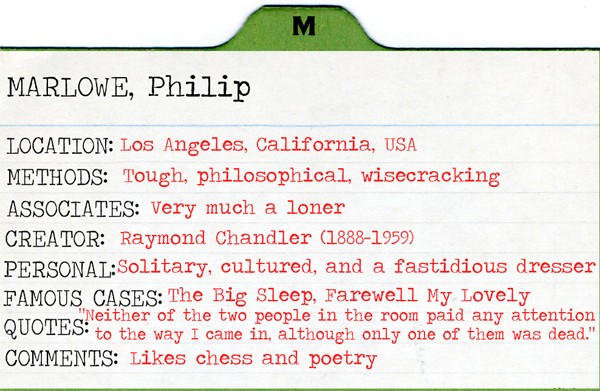 M
MARLOWE, Philip
LOCATION: Los Angeles, California, USA
METHODS: Tough, philosophical, wisecracking
ASSOCIATES: Very much a loner
CREATOR: Raymond Chandler (1888-1959)
PERSONAL: Solitary, cultured, and a fastidious dresser
FAMOUS CASES: The Big Sleep, Farewell My Lovely
QUOTES: "Neither of the two people in the room paid any attention
to the way I came in, although only one of them was dead."
COMMENTS: Likes chess and poetry